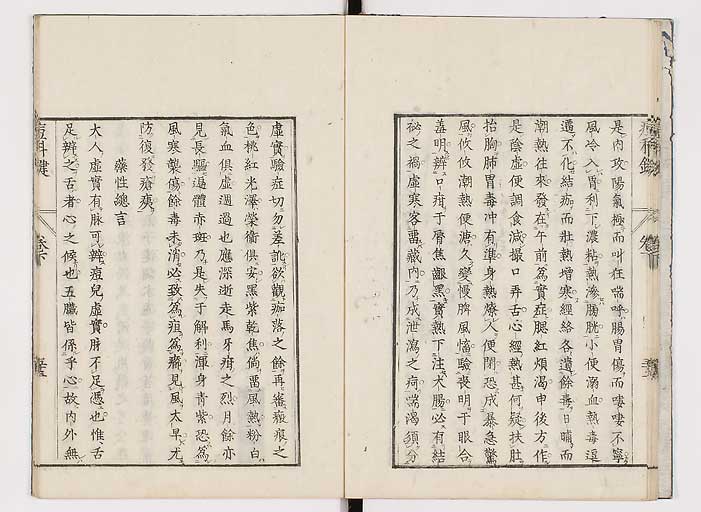 是内攻陽氣極而叫狂喘呼腸胃傷而悽悽不寧
風冷入胃利下濃粘熱滲膀胱小便溺血熱毒逗
遛不化結疬而壯熱增寒經絡各遺餘毒日晡而
潮熱往來發在午前爲實症腮紅煩渴申後方作
是陰虛便調食減撮口弄舌心經熱甚何疑扶肚
抬胸肺胃毒冲有準身熱燎人便閉恐成暴急驚
風攸攸潮熱便溏久變慢脾風惱驗喪明于眼合
羞明辨口疳于唇焦齦黑實熱下注大腸必有結
秘之禍虛寒客畱藏内乃成泄瀉之疴喘渴須分
虛實驗症切勿差訛欲觀痂落之餘再審瘢痕之
色桃紅光澤榮衞俱安黑紫乾焦倘畱熱粉白
氣血俱虛遇過也應深逝走馬牙疳之烈月餘亦
見長驅逼體赤斑乃是失于解利渾身青紫恐爲
風寒襲傷餘毒未消必致爲疽爲癰見風太早尤
防復發瘡痍
藥性總言
大人虛實有脉可辨痘兒虛實脉不足憑也惟舌
足辨之舌者心之候也五臟皆係乎心故内外無
痘科鍵
卷下